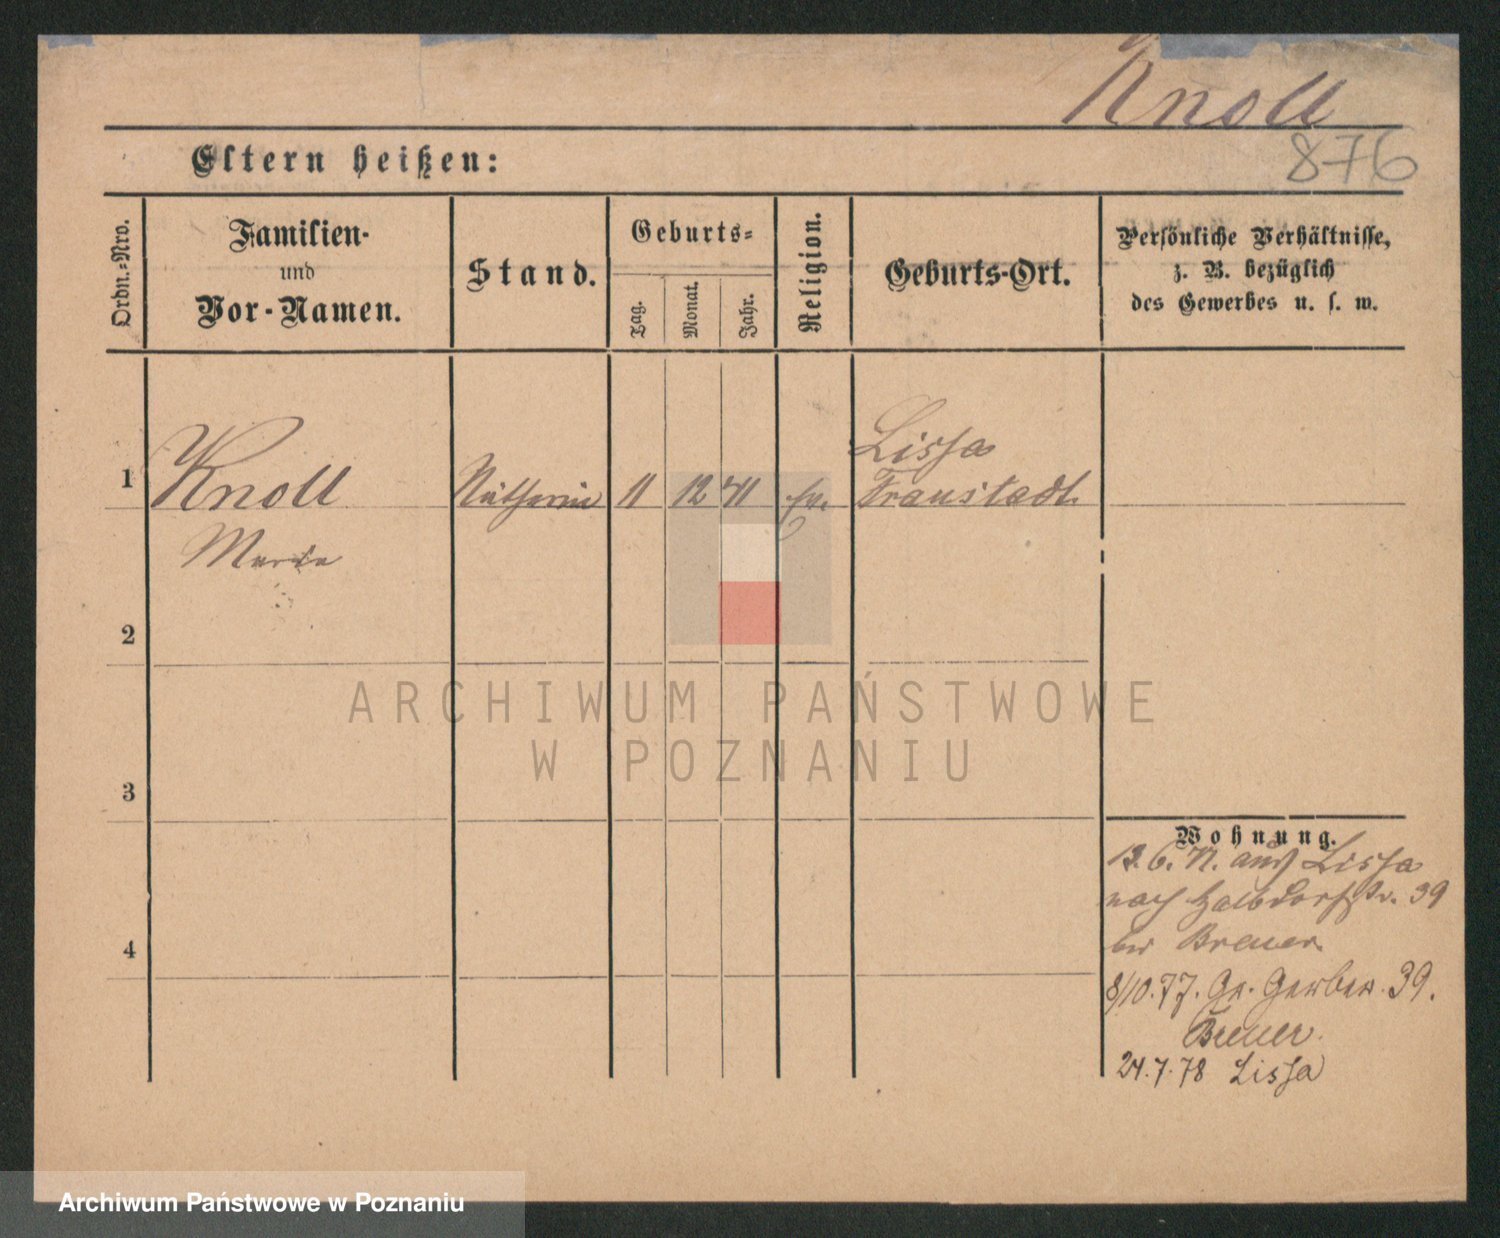 Knoll
876
Eltern heißen:
Ordn.-Nro.
Familien-
und
Vor-Namen.
Stand.
Geburts-
Tag.
Monat.
Jahr.
Religion.
Geburts-Ort.
Persönliche Verhältnisse,
z. B. bezüglich
des Gewerbes u. s. w.
1
Knoll
Maria
Näthserin
11
12
41
ev.
Lissa
Fraustadt
2
3
4
Wohnung.
13. 6. 77. aus Lissa
nach Halbdorfstr. 39
bei Breuer
8/10.77. Gr. Gerber. 39.
Breuer.
24.7.78 Lissa
ARCHIWUM PAŃSTWOWE
W POZNANIU
Archiwum Państwowe w Poznaniu